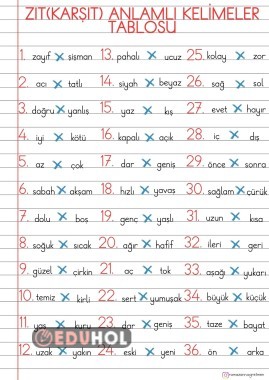 ZIT(KARŞIT) ANLAMLI KELİMELER
TABLOSU
1. zayıf x şişman 13. pahalı x ucuz 25. kolay x zor
2. acı x tatlı 14. siyah x beyaz 26. sağ x sol
3. doğru x yanlış 15. yaz x kış 27. evet x hayır
4. iyi x kötü 16. kapalı x açık 28. iç x dış
5. az x çok 17. dar x geniş 29. önce x sonra
6. sabah x akşam 18. hızlı x yavaş 30. sağlam x çürük
7. dolu x boş 19. genç x yaşlı 31. uzun x kısa
8. soğuk x sıcak 20. ağır x hafif 32. ileri x geri
9. güzel x çirkin 21. aç x tok 33. aşağı x yukarı
10. temiz x kirli 22. sert x yumuşak 34. büyük x küçük
11. yaş x kuru 23. dar x geniş 35. taze x bayat
12. uzak x yakın 24. eski x yeni 36. ön x arka
EDUHOL